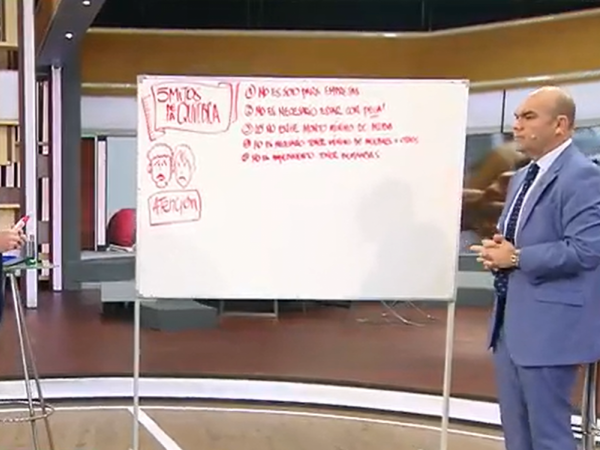 5 MITOS
DE LA QUIEBRA
① NO ES SOLO PARA EMPRESAS
② NO ES NECESARIO ESTAR CON PEGA!
③ NO EXISTE MONTO MINIMO DE DEUDA
④ NO ES NECESARIO TENER MINIMO DE
⑤ NO ES IMPEDIMENTO TENER DEMANDAS
ATENCION